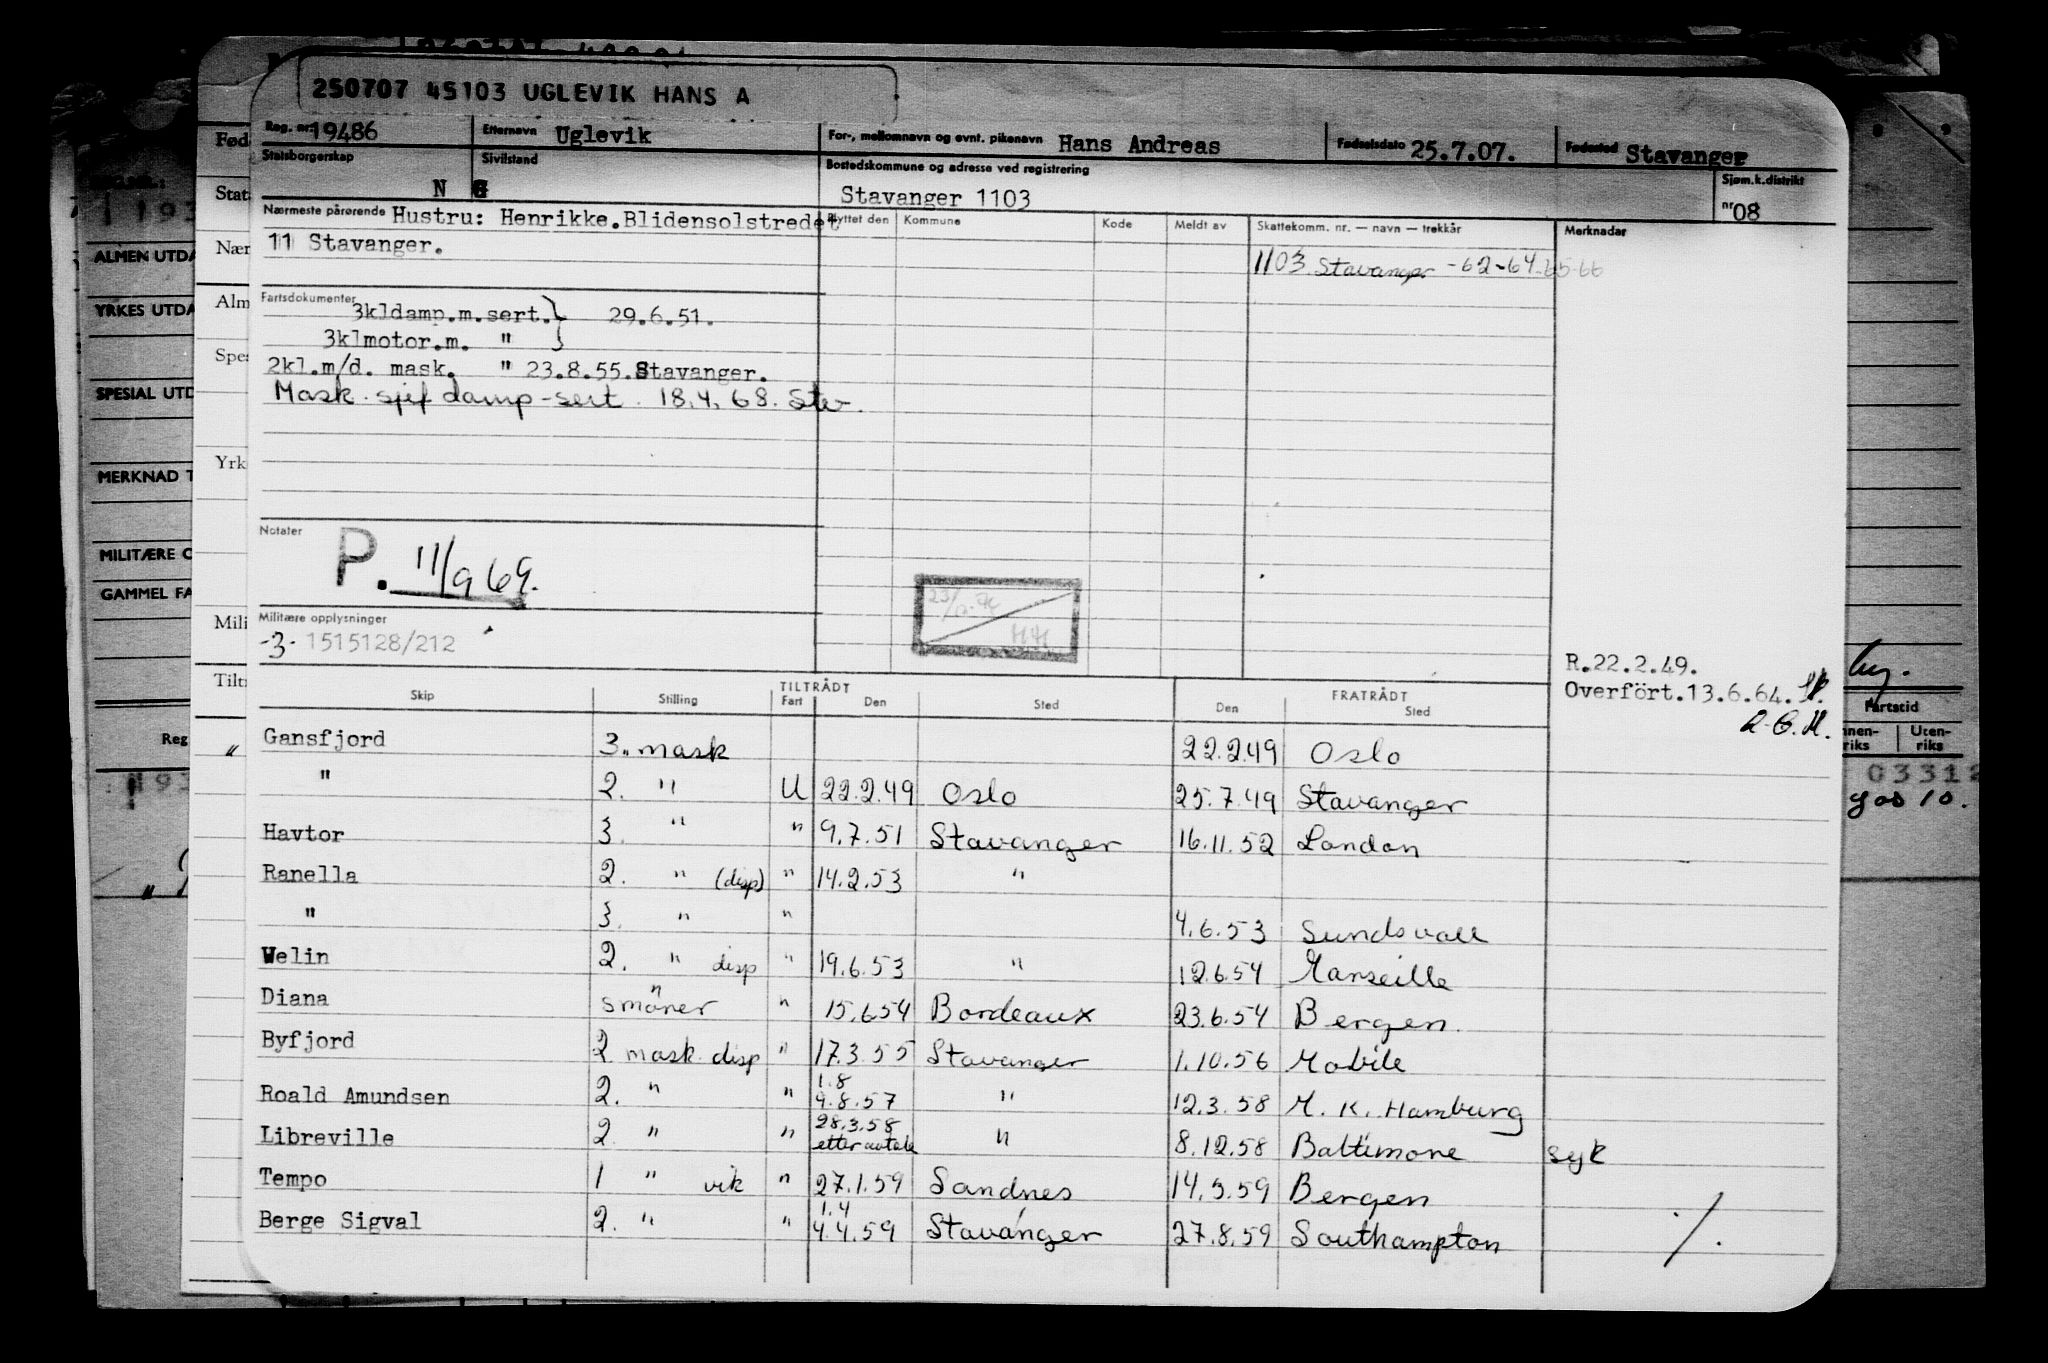 250707 45103 UGLEVIK HANS A
Reg. nr. 19486 Etternavn Uglevik For-, mellomnavn og evnt. pikenavn Hans Andreas Fødselsdato 25.7.07. Fødested Stavanger
Statsborgerskap N Sivilstand G Bostedskommune og adresse ved registrering Stavanger 1103 Sjøm.k.distrikt nr 08
Nærmeste pårørende Hustru: Henrikke.Blidensolstredet
11 Stavanger.
Flyttet den Kommune Kode Meldt av Skattekomm. nr. — navn — trekkår Merknader
1103 Stavanger -62-64-65-66
Fartsdokumenter
3kldamp.m.sert.} 29.6.51.
3klmotor.m. " }
2kl.m/d. mask. " 23.8.55.Stavanger.
Mask. sjef damp-sert. 18.4.68. Stv.
Notater
P. 11/9 69.
23/ HH
Militære opplysninger
-3- 1515128/212
R.22.2.49.
Overført.13.6.64.
Skip Stilling TILTRÅDT Fart Den Sted FRATRÅDT Den Sted
Gansfjord 3. mask 22.2.49 Oslo
" 2. " U 22.2.49 Oslo 25.7.49 Stavanger
Havtor 3. " " 9.7.51 Stavanger 16.11.52 London
Ranella 2. " (disp) " 14.2.53 "
" 3. " " 4.6.53 Sundsvall
Welin 2. " disp " 19.6.53 " 12.6.54 Marseille
Diana " smører " 15.6.54 Bordeaux 23.6.54 Bergen.
Byfjord 2 mask disp " 17.3.55 Stavanger 1.10.56 Mobile
Roald Amundsen 2. " " 1.8 4.8.57 " 12.3.58 M. K. Hamburg
Libreville 2. " " 28.3.58 etter avtale " 8.12.58 Baltimore syk
Tempo 1 " vik " 27.1.59 Sandnes 14.3.59 Bergen
Berge Sigval 2. " " 1.4 4.4.59 Stavanger 27.8.59 Southampton
./.
ALMEN UTDA
YRKES UTDA
SPESIAL UTD
MERKNAD T
MILITÆRE O
GAMMEL FA
Reg
Fød
Stat
Nær
Alm
Spes
Yrk
Mili
Tilt
Fartstid
Innen-riks Uten-riks
03312